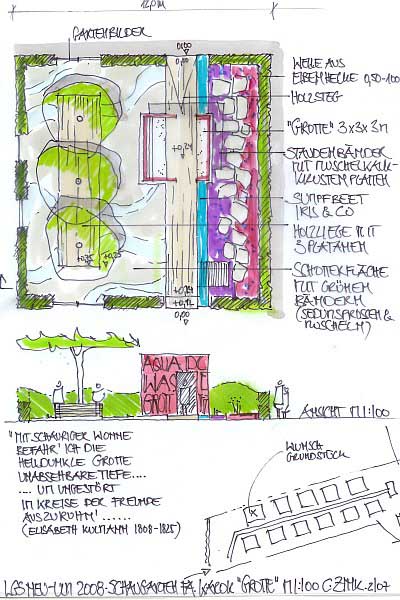 12,0M
GARTENBILDER
0,00
0,00
WELLE AUS
EIBENHECKE 0,50-1,00
HOLZSTEG
"GROTTE" 3x3x3M
+0,24
STAUDENBÄNDER
MIT MUSCHELKALK-
KRUSTENPLATTEN
SUMPFBEET
IRIS & CO
HOLZLIEGE MIT
3 PLATANEN
+0,35
SCHOTTERFLÄCHE
MIT GRÜNEN
BÄNDERN
(SEDUMSPROSSEN &
MUSCHELN)
0,00
AQUA
GROT
ANSICHT M 1:100
"MIT SCHAURIGER WONNE
BEFAHR' ICH DIE
HELLDUNKLE GROTTE
UNABSEHBARE TIEFE....
.... UM UNGESTÖRT
IM KREISE DER FREUNDE
AUSZURUHN" ......
(ELISABETH KULMANN 1808-1825)
WUNSCH
GRUNDSTÜCK
X
LGS NEU-ULM 2008-SCHAUGARTEN FA. "GROTTE" M 1:100 2/07